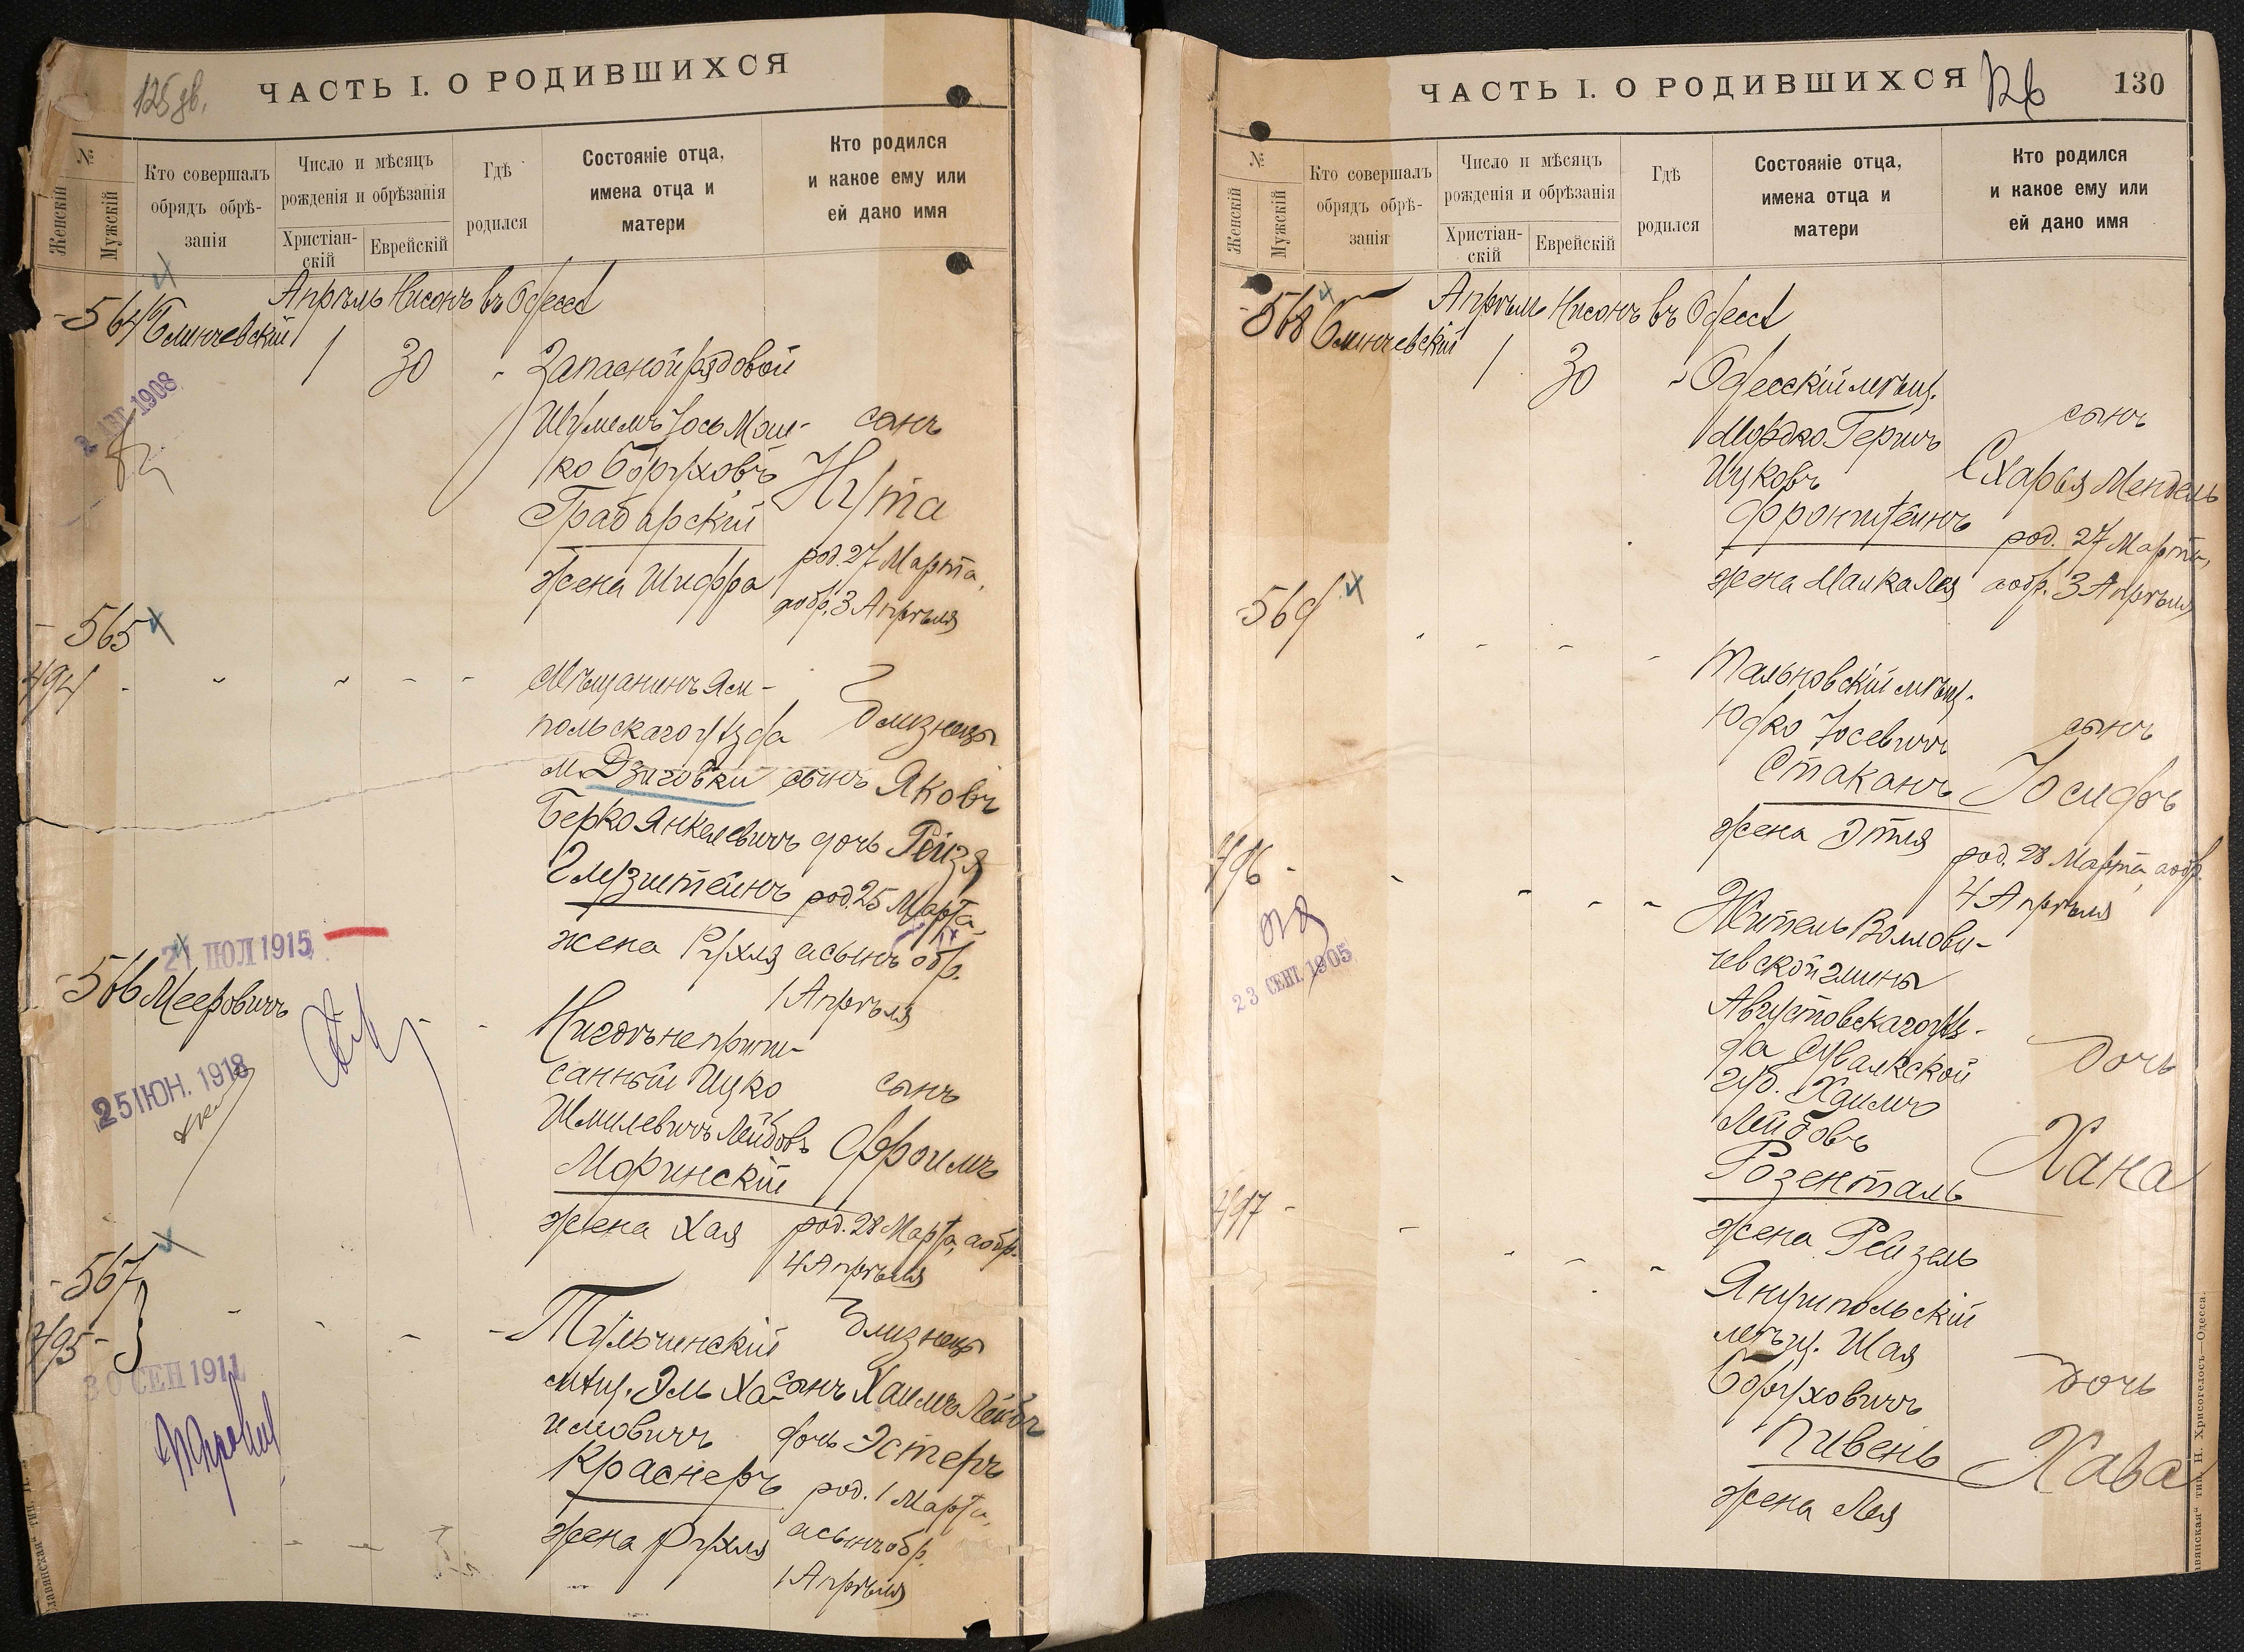 125 дв.
ЧАСТЬ I. О РОДИВШИХСЯ
№
Женскій
Мужскій
Кто совершалъ
обрядъ обрѣ-
занія
Число и мѣсяцъ
рожденія и обрѣзанія
Христіан-
скій
Еврейскій
Гдѣ
родился
Состояніе отца,
имена отца и
матери
Кто родился
и какое ему или
ей дано имя
Апрѣль Нисонъ въ Одессѣ
564 Блинчевскій
1 30 Запасной рядовой
1908
Шулимъ Іось Мош-
сынъ
ко Боруховъ
Нута
Грабарскій
род. 27 Марта,
жена Шифра
а обр. 3 Апрѣля
565
494
Мѣщанинъ Ям-
польскаго уѣзда
близнецы
м. Дзиговки сынъ Яковъ
Берко Янкелевичъ дочь Рейзя
Глузштейнъ род. 25 Марта,
жена Рухля а сынъ обр.
1 Апрѣля
21 ІЮЛ 1915
566 Мееровичъ
Нигдѣ не припи-
санный Ицко
сынъ
25 ІЮН. 1918
Шмилевичъ Лейбовъ
Эфроимъ
Моринскій
жена Хая
род. 28 Марта, а обр.
4 Апрѣля
567
495
Тульчинскій
близнецы
30 СЕН 1911
мѣщ. Эль Ха- сынъ Хаимъ Лейбъ
имовичъ дочь Эстеръ
Краснеръ род. 1 Марта,
жена Рухля а сынъ обр.
1 Апрѣля
ЧАСТЬ I. О РОДИВШИХСЯ
126
130
№
Женскій
Мужскій
Кто совершалъ
обрядъ обрѣ-
занія
Число и мѣсяцъ
рожденія и обрѣзанія
Христіан-
скій
Еврейскій
Гдѣ
родился
Состояніе отца,
имена отца и
матери
Кто родился
и какое ему или
ей дано имя
Апрѣль Нисонъ въ Одессѣ
568 Блинчевскій
1 30 Одесскій мѣщ.
сынъ
Мордко Гершъ
Ицковъ
Схарья Мендель
Фронштейнъ
род. 27 Марта,
жена Малка Лея
а обр. 3 Апрѣля
569
Тальновскій мѣщ.
Юдко Іосевичъ
сынъ
Стаканъ
Іосифъ
жена Этля
род. 28 Марта, а обр.
4 Апрѣля
496
Житель Воллови-
чевской гмины
23 СЕНТ. 1905
Августовскаго уѣз-
да Сувалкской
дочь
губ. Хаимъ
Лейбовъ
Хана
Розенталь
жена Рейзель
497
Янушпольскій
мѣщ. Шая
дочь
Боруховичъ
Пивень
Хава
жена Лея
„Славянская“ тип. Н. Хрисогелосъ—Одесса.